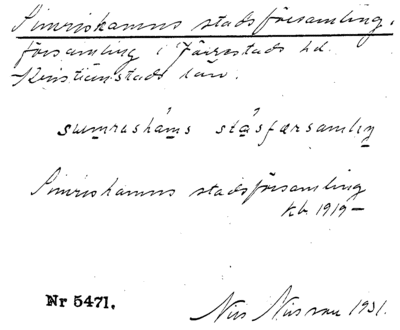 Simrishamns stadsförsamling.
församling i Järrestads hd.
Kristianstads län.
Simrishamns stadsförsamling
kb 1919–
Nr 5471.
Nils 1931.